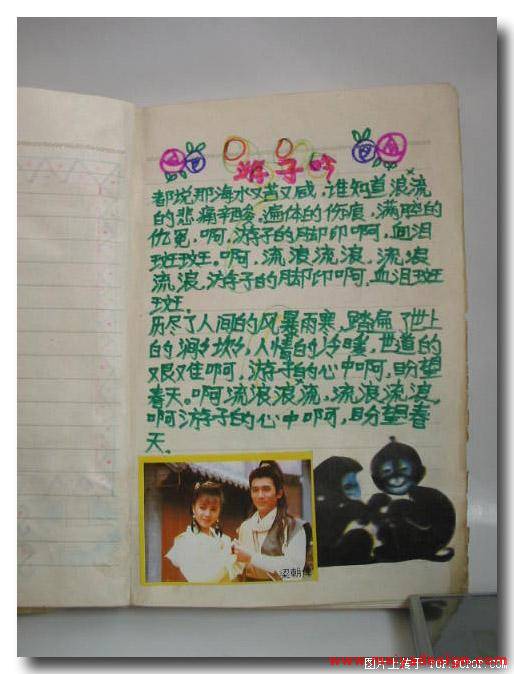 游子吟
都说那海水又苦又咸，谁知道浪流
的悲痛辛酸，遍体的伤痕，满腔的
仇冤，啊，游子的脚印啊，血泪
斑斑。啊，流浪流浪，流浪
流浪，游子的脚印啊，血泪斑
斑．
历尽了人间的风暴雨寒，踏遍了世上
的涧沟坎坎，人情的冷暖，世道的
艰难啊，游子的心中啊，盼望
春天。啊流浪浪流，流浪流浪，
啊游子的心中啊，盼望春
天．
梁朝
图片上传于